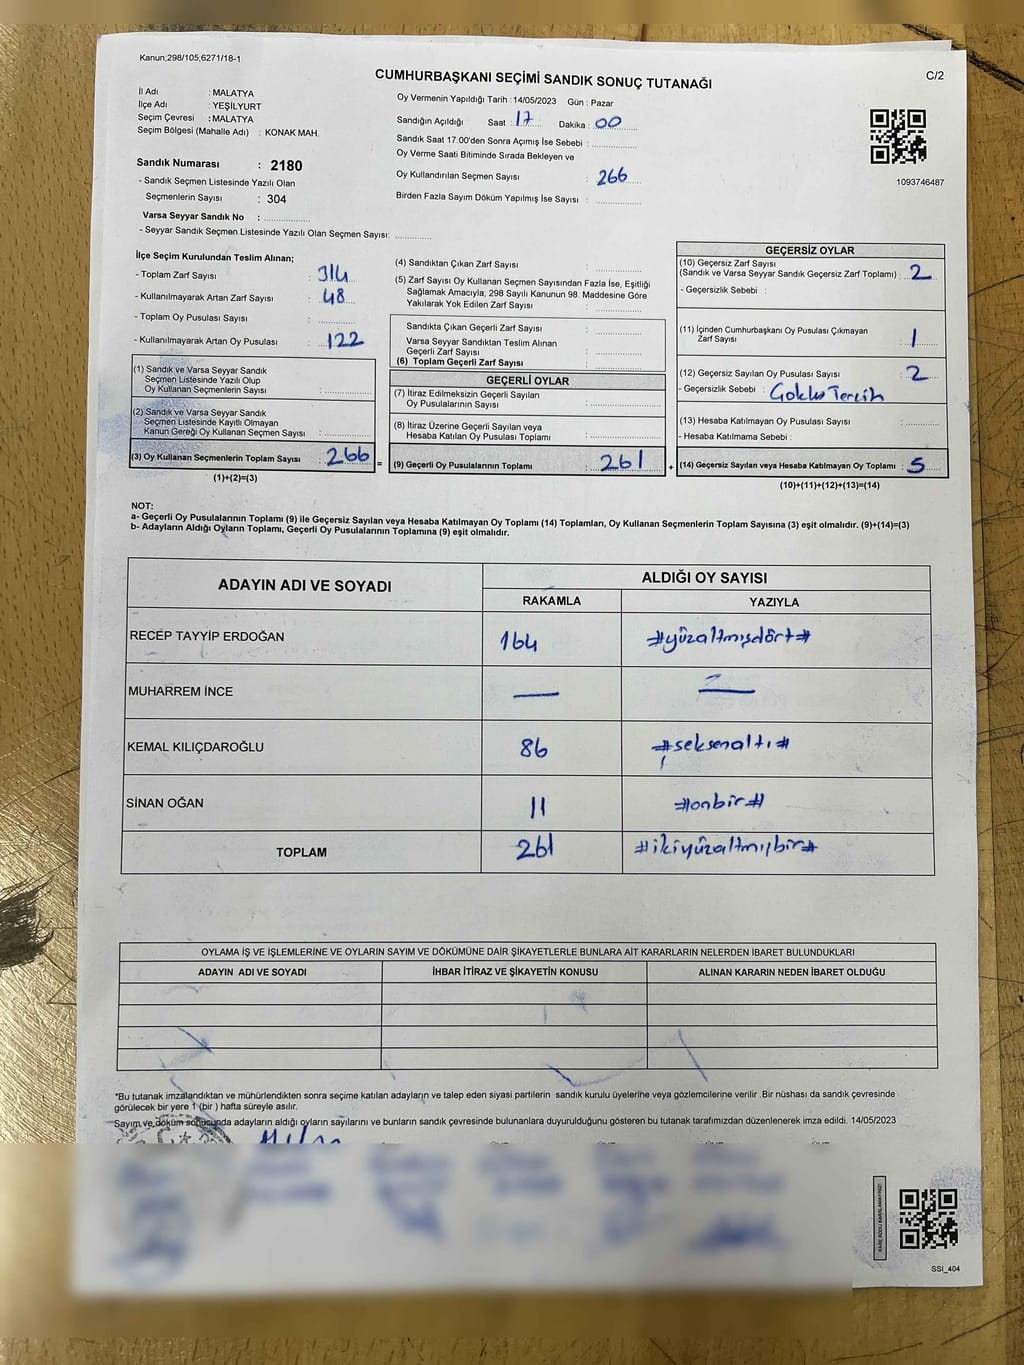 Kanun;298/105;6271/18-1
CUMHURBAŞKANI SEÇİMİ SANDIK SONUÇ TUTANAĞI
C/2
İl Adı : MALATYA
İlçe Adı : YEŞİLYURT
Seçim Çevresi : MALATYA
Seçim Bölgesi (Mahalle Adı) : KONAK MAH.
Oy Vermenin Yapıldığı Tarih : 14/05/2023 Gün : Pazar
Sandığın Açıldığı Saat : 17 Dakika : 00
Sandık Saat 17:00'den Sonra Açımış İse Sebebi :
Oy Verme Saati Bitiminde Sırada Bekleyen ve
Oy Kullandırılan Seçmen Sayısı : 266
Birden Fazla Sayım Döküm Yapılmış İse Sayısı :
1093746487
Sandık Numarası : 2180
- Sandık Seçmen Listesinde Yazılı Olan
Seçmenlerin Sayısı : 304
Varsa Seyyar Sandık No :
- Seyyar Sandık Seçmen Listesinde Yazılı Olan Seçmen Sayısı:
İlçe Seçim Kurulundan Teslim Alınan;
- Toplam Zarf Sayısı : 314
- Kullanılmayarak Artan Zarf Sayısı : 48
- Toplam Oy Pusulası Sayısı :
- Kullanılmayarak Artan Oy Pusulası : 122
(1) Sandık ve Varsa Seyyar Sandık
Seçmen Listesinde Yazılı Olup
Oy Kullanan Seçmenlerin Sayısı :
(2) Sandık ve Varsa Seyyar Sandık
Seçmen Listesinde Kayıtlı Olmayan
Kanun Gereği Oy Kullanan Seçmen Sayısı :
(3) Oy Kullanan Seçmenlerin Toplam Sayısı : 266 =
(1)+(2)=(3)
(4) Sandıktan Çıkan Zarf Sayısı :
(5) Zarf Sayısı Oy Kullanan Seçmen Sayısından Fazla İse, Eşitliği
Sağlamak Amacıyla; 298 Sayılı Kanunun 98. Maddesine Göre
Yakılarak Yok Edilen Zarf Sayısı :
Sandıkta Çıkan Geçerli Zarf Sayısı :
Varsa Seyyar Sandıktan Teslim Alınan
Geçerli Zarf Sayısı :
(6) Toplam Geçerli Zarf Sayısı :
GEÇERLİ OYLAR
(7) İtiraz Edilmeksizin Geçerli Sayılan
Oy Pusulalarının Sayısı :
(8) İtiraz Üzerine Geçerli Sayılan veya
Hesaba Katılan Oy Pusulası Toplamı :
(9) Geçerli Oy Pusulalarının Toplamı : 261 +
GEÇERSİZ OYLAR
(10) Geçersiz Zarf Sayısı
(Sandık ve Varsa Seyyar Sandık Geçersiz Zarf Toplamı) : 2
- Geçersizlik Sebebi :
(11) İçinden Cumhurbaşkanı Oy Pusulası Çıkmayan
Zarf Sayısı : 1
(12) Geçersiz Sayılan Oy Pusulası Sayısı : 2
- Geçersizlik Sebebi : Tercih
(13) Hesaba Katılmayan Oy Pusulası Sayısı :
- Hesaba Katılmama Sebebi :
(14) Geçersiz Sayılan veya Hesaba Katılmayan Oy Toplamı : 5
(10)+(11)+(12)+(13)=(14)
NOT:
a- Geçerli Oy Pusulalarının Toplamı (9) ile Geçersiz Sayılan veya Hesaba Katılmayan Oy Toplamı (14) Toplamları, Oy Kullanan Seçmenlerin Toplam Sayısına (3) eşit olmalıdır. (9)+(14)=(3)
b- Adayların Aldığı Oyların Toplamı, Geçerli Oy Pusulalarının Toplamına (9) eşit olmalıdır.
ADAYIN ADI VE SOYADI ALDIĞI OY SAYISI
RAKAMLA YAZIYLA
RECEP TAYYİP ERDOĞAN 164 #yüzaltmışdört#
MUHARREM İNCE — —
KEMAL KILIÇDAROĞLU 86 #seksenaltı#
SİNAN OĞAN 11 #onbir#
TOPLAM 261 #ikiyüzaltmışbir#
OYLAMA İŞ VE İŞLEMLERİNE VE OYLARIN SAYIM VE DÖKÜMÜNE DAİR ŞİKAYETLERLE BUNLARA AİT KARARLARIN NELERDEN İBARET BULUNDUKLARI
ADAYIN ADI VE SOYADI İHBAR İTİRAZ VE ŞİKAYETİN KONUSU ALINAN KARARIN NEDEN İBARET OLDUĞU
*Bu tutanak imzalandıktan ve mühürlendikten sonra seçime katılan adayların ve talep eden siyasi partilerin sandık kurulu üyelerine veya gözlemcilerine verilir .Bir nüshası da sandık çevresinde
görülecek bir yere 1 (bir ) hafta süreyle asılır.
Sayım ve döküm sonucunda adayların aldığı oyların sayılarını ve bunların sandık çevresinde bulunanlara duyurulduğunu gösteren bu tutanak tarafımızdan düzenlenerek imza edildi. 14/05/2023
KARE KODU KARALAMAYINIZ!
SSİ_404